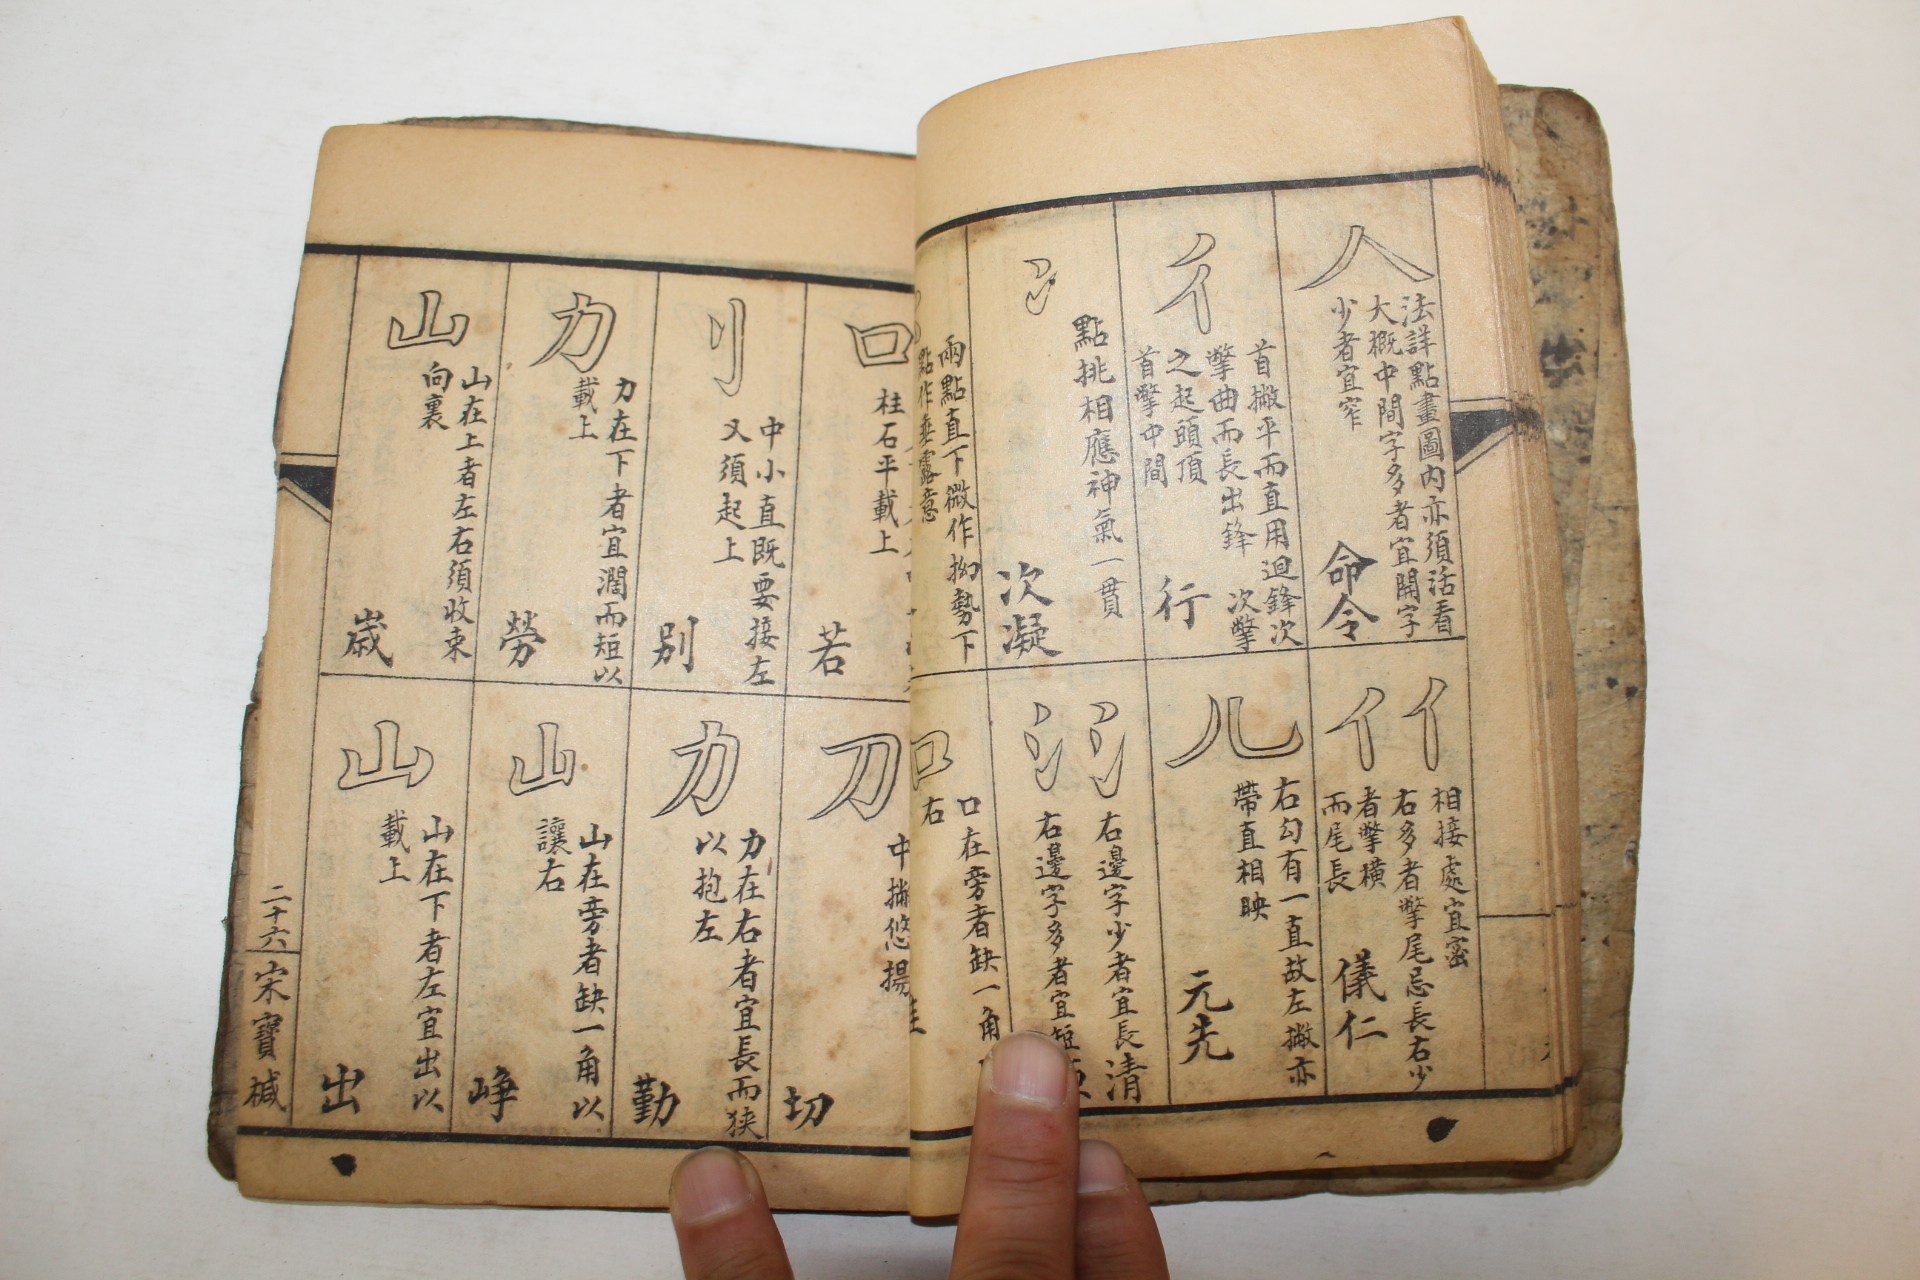 人
法詳點畫圖內亦須活看
大概中間字多者宜開字
少者宜窄
命令
彳
首撇平而直用迴鋒次
撆曲而長出鋒 次撆
之起頭頂
首撆中間
行
冫
點挑相應神氣一貫
次凝
兩點直下微作拗勢下
點作垂露意
亻亻
相接處宜密
右多者撆尾忌長右少
者撆橫
而尾長
儀仁
儿
右勾有一直故左撇亦
帶直相映
元先
氵氵
右邊字少者宜長
清
右邊字多者宜短
口
口在旁者缺一角
右
口
柱石平載上
若
刂
中小直既要接左
又須起上
別
力
力在下者宜濶而短以
載上
勞
山
山在上者左右須收束
向裏
歲
刀
中撇悠揚
切
力
力在右者宜長而狹
以抱左
勤
山
山在旁者缺一角以
讓右
崢
山
山在下者左宜出以
載上
出
二十六
宋寶椷